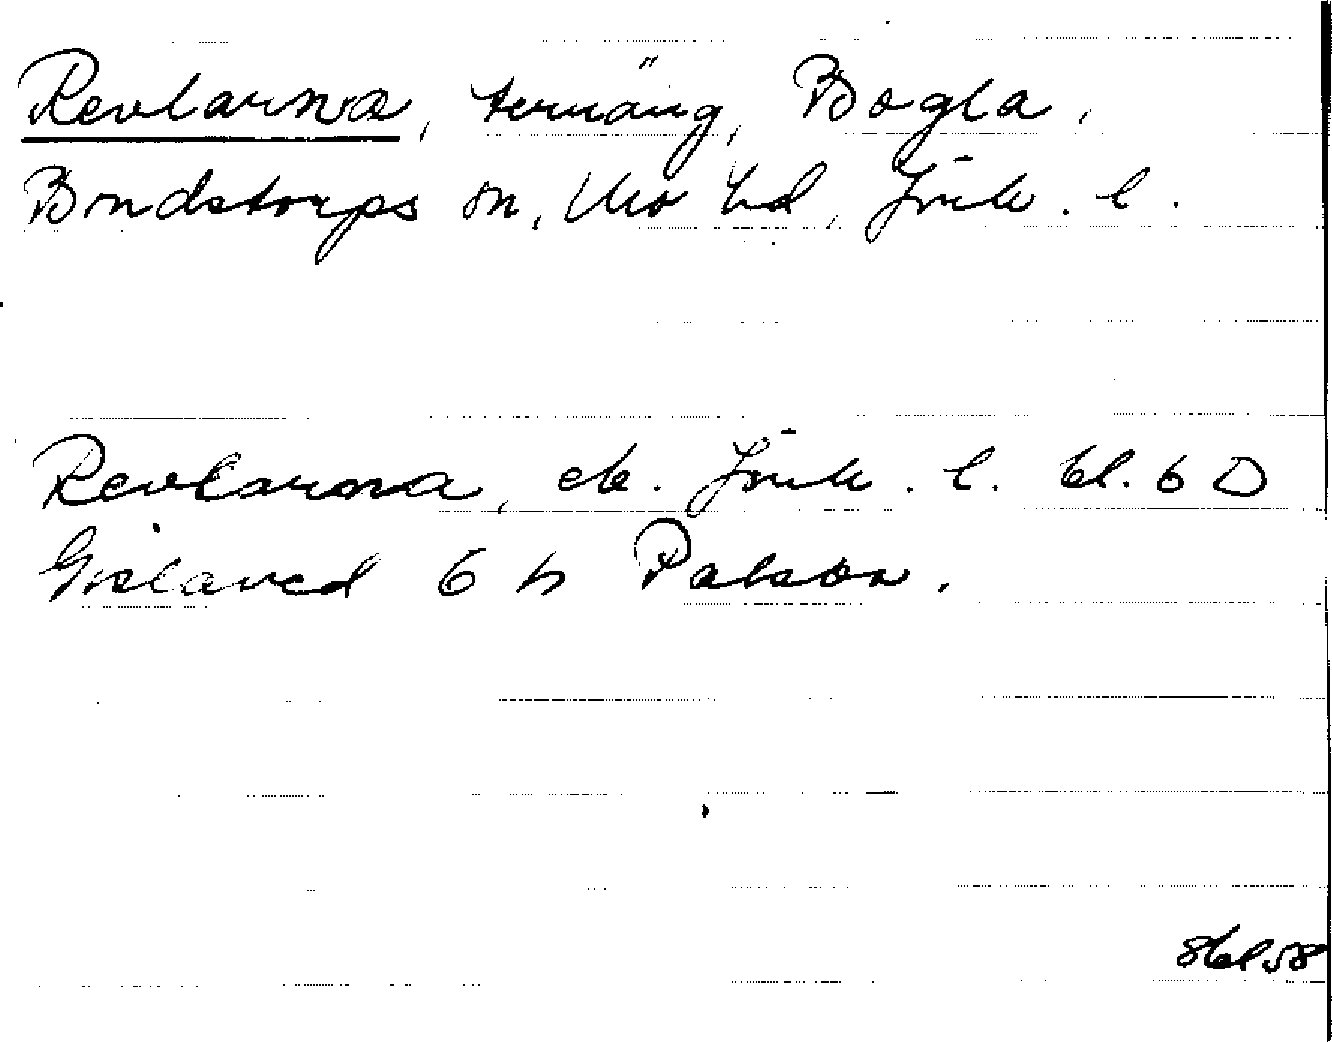 Revlarna, terräng, Bogla,
Bondstorps sn, Mo hd, Jönk. l.
Revlarna, ek. Jönk. l. bl. 6 D
Gislaved 6 h Palson.